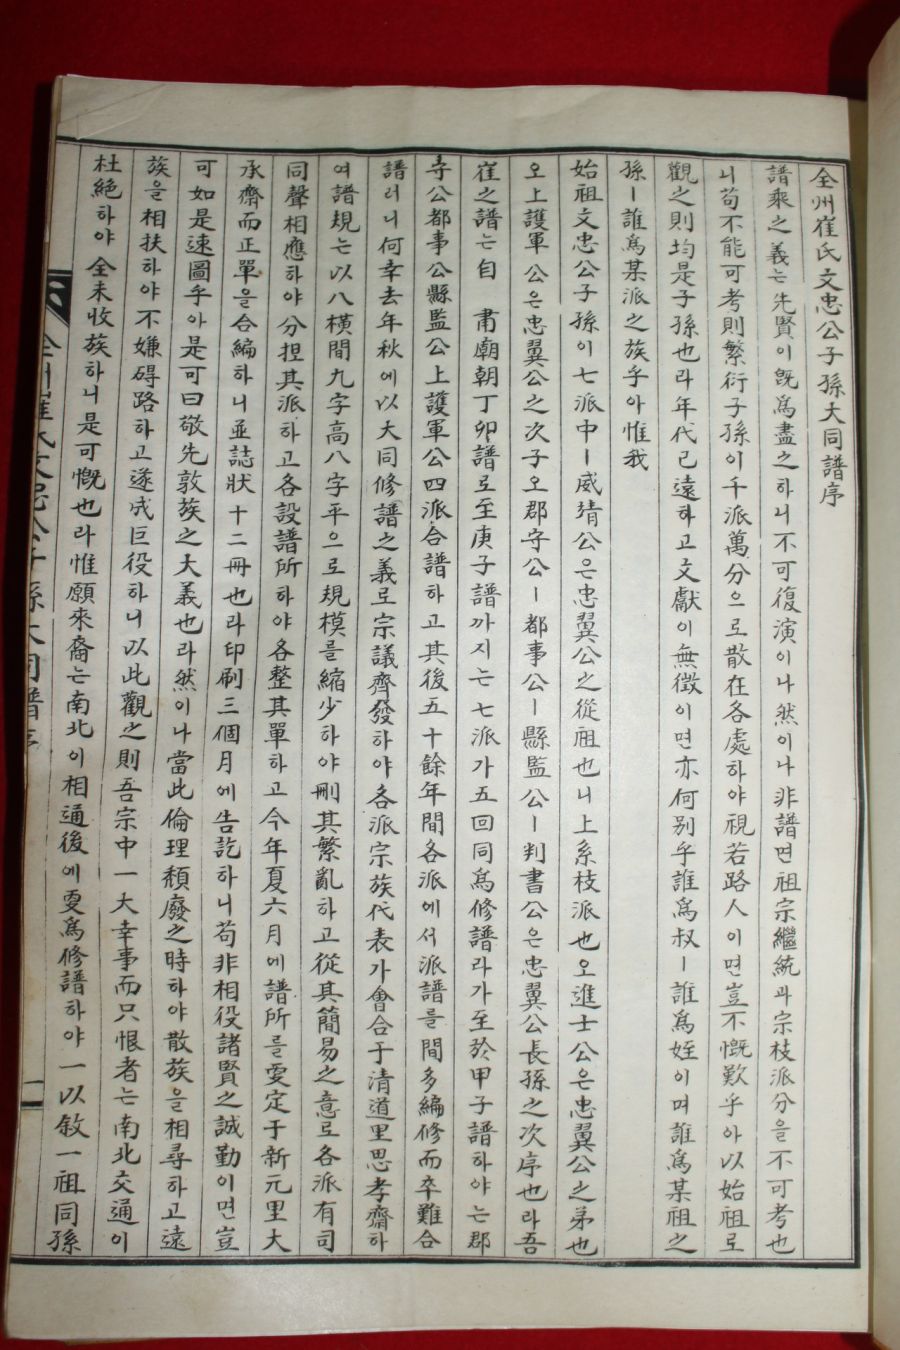 全州崔氏文忠公子孫大同譜序
譜乘之義는先賢이旣爲盡之하니不可復演이나然이나非譜면祖宗繼統과宗枝派分을不可考也
니苟不能可考則繁衍子孫이千派萬分으로散在各處하야視若路人이면豈不慨歎乎아以始祖로
觀之則均是子孫也라年代已遠하고文獻이無徵이면亦何別乎誰爲叔ㅣ誰爲姪이며誰爲某祖之
孫ㅣ誰爲某派之族乎아惟我
始祖文忠公子孫이七派中ㅣ威靖公은忠翼公之從祖也니上系枝派也오進士公은忠翼公之弟也
오上護軍公은忠翼公之次子오郡守公ㅣ都事公ㅣ縣監公ㅣ判書公은忠翼公長孫之次序也라吾
崔之譜는自 肅廟朝丁卯譜로至庚子譜까지는七派가五回同爲修譜라가至於甲子譜하야는郡
守公都事公縣監公上護軍公四派合譜하고其後五十餘年間各派에서派譜를間多編修而卒難合
譜러니何幸去年秋에以大同修譜之義로宗議齊發하야各派宗族代表가會合于淸道里思孝齋하
여譜規는以八橫間九字高八字平으로規模를縮少하야刪其繁亂하고從其簡易之意로各派有司
同聲相應하야分担其派하고各設譜所하야各整其單하고今年夏六月에譜所를更定于新元里大
承齋而正單을合編하니並誌狀十二冊也라印刷三個月에告訖하니苟非相役諸賢之誠勤이면豈
可如是速圖乎아是可曰敬先敦族之大義也라然이나當此倫理頹廢之時하야散族을相尋하고遠
族을相扶하야不嫌碍路하고遂成巨役하니以此觀之則吾宗中一大幸事而只恨者는南北交通이
杜絶하야全未收族하니是可慨也라惟願來裔는南北이相通後에更爲修譜하야一以敍一祖同孫
全州崔氏文忠公子孫大同譜序
一